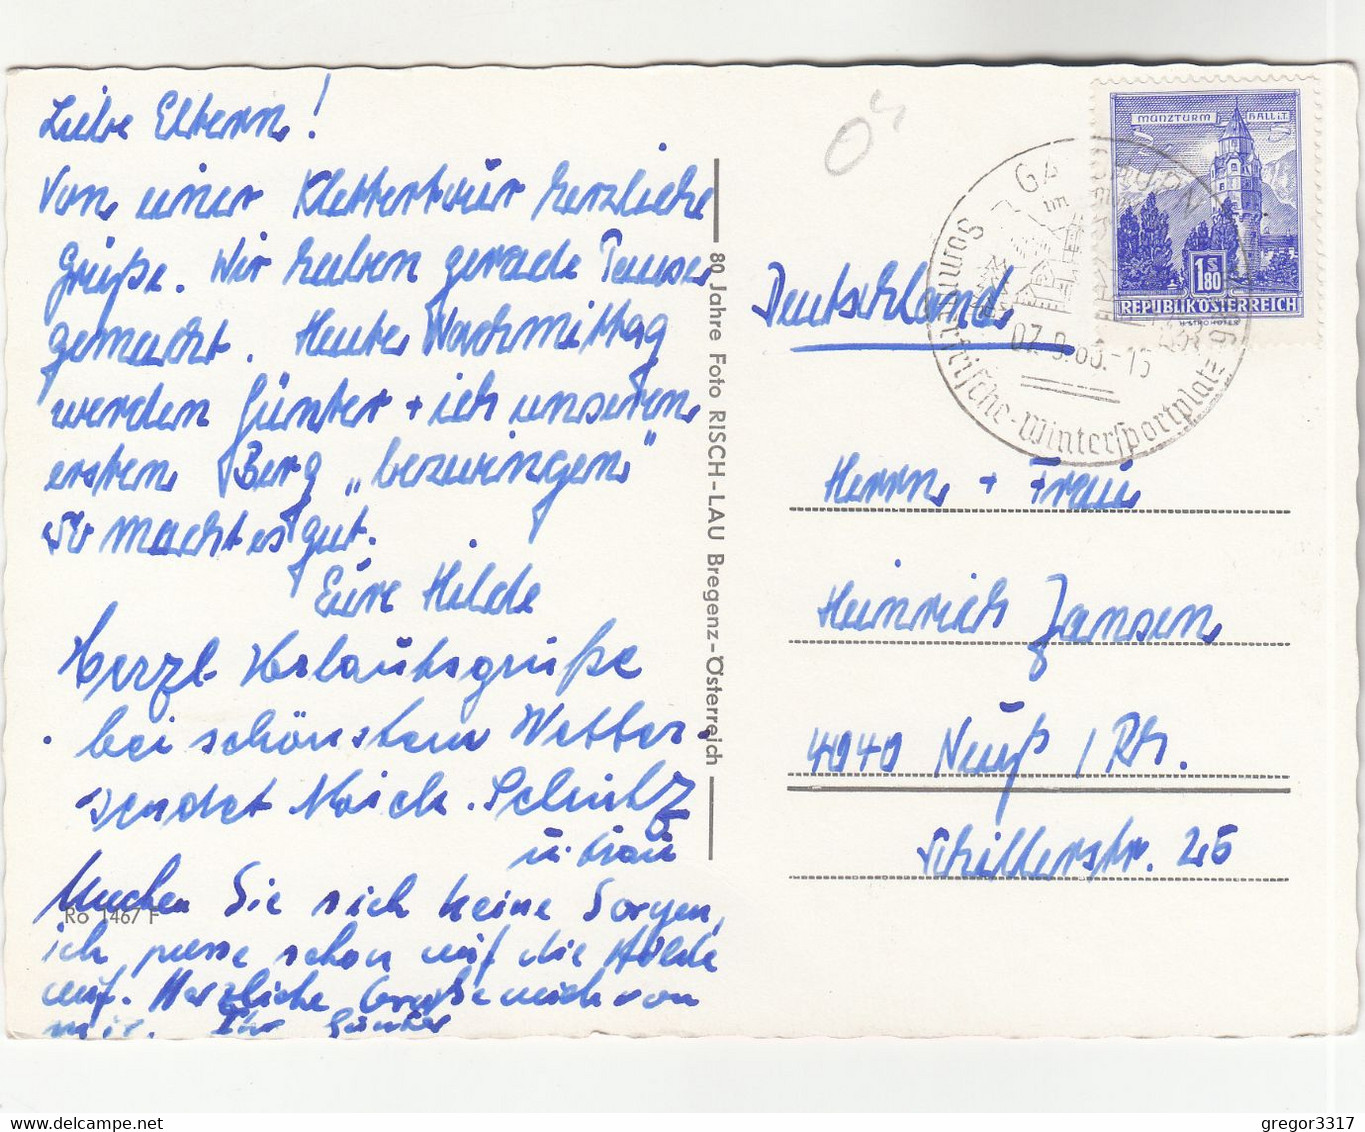 Liebe Eltern!
Von einer Klettertour herzliche
Grüße. Wir haben gerade Pause
gemacht. Heute Nachmittag
werden Günter + ich unseren
ersten Berg „bezwingen"
So macht es gut.
Eure Hilde
Herzl. Urlaubsgrüße
bei schönstem Wetter
sendet Schultz
u. Frau
Machen Sie sich keine Sorgen,
ich passe schon auf die Hilde
auf. Herzliche Grüße auch von
mir. Ihr Günter
Ro 1467 F
80 Jahre Foto RISCH-LAU Bregenz-Österreich
MÜNZTURM HALL i.T.
1 S 80
REPUBLIK ÖSTERREICH
im
Sommerfrische-Wintersportplatz
Deutschland
Herrn + Frau
Heinrich Jansen
4040 Neuß / Rh.
Schillerstr. 25
gregor3317